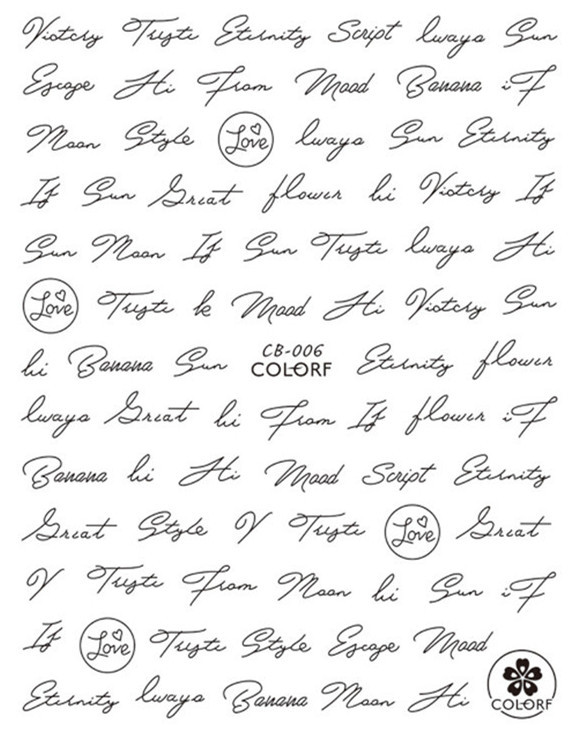 Victcry Truste Eternity Script lwaya Sun
Escape Hi From Mood Banana iF
Moon Style Love lwaya Sun Eternity
If Sun Great flower hi Victcry If
Sun Moon If Sun Truste lwaya Hi
Love Truste k Mood Hi Victcry Sun
hi Banana Sun CB-006 COLORF Eternity flower
lwaya Great hi From If flower iF
Banana hi Hi Mood Script Eternity
Great Style V Truste Love Great
V Truste From Moon hi Sun iF
If Love Truste Style Escape Mood
Eternity lwaya Banana Moon Hi COLORF